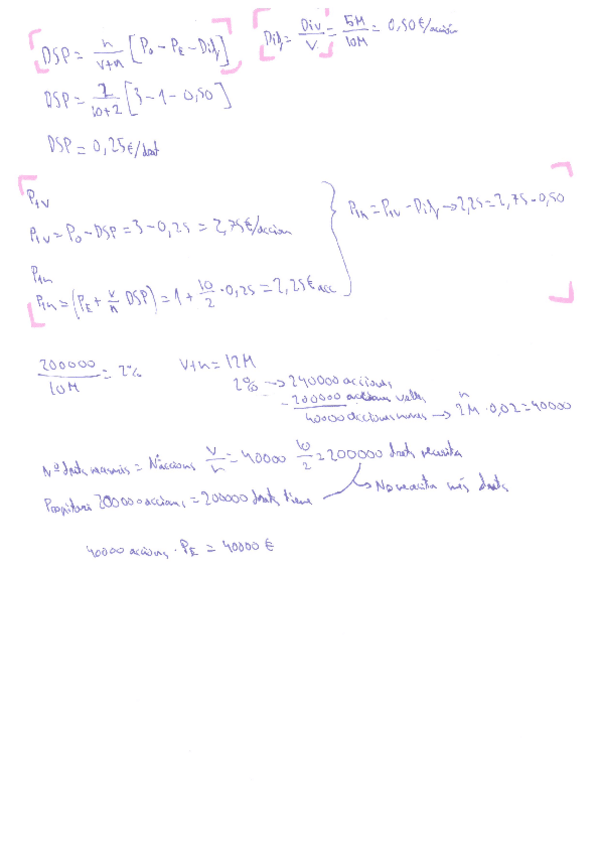 DSP = n/(v+n) [P₀ - P_E - Dif]
Dif = Div/V = 5M/10M = 0,50€/acción
DSP = 2/(10+2) [3-1-0,50]
DSP = 0,25€/dret
P₁v
P₁v = P₀ - DSP = 3 - 0,25 = 2,75€/accion
P₁n = P₁v - Dif → 2,25 = 2,75 - 0,50
P₁n
P₁n = (P_E + v/n DSP) = 1 + 10/2 · 0,25 = 2,25€ acc
200000/10M = 2% v+n = 12M
2% → 240000 accions
- 200000 accions velles
40000 accions noves → 2M · 0,02 = 40000
n
Nº drets necesaris = Nº accions v/n = 40000 10/2 = 200000 drets necesita
Propitari 200000 accions = 200000 drets tiene → No necesita más drets
40000 accions · P_E = 40000 €